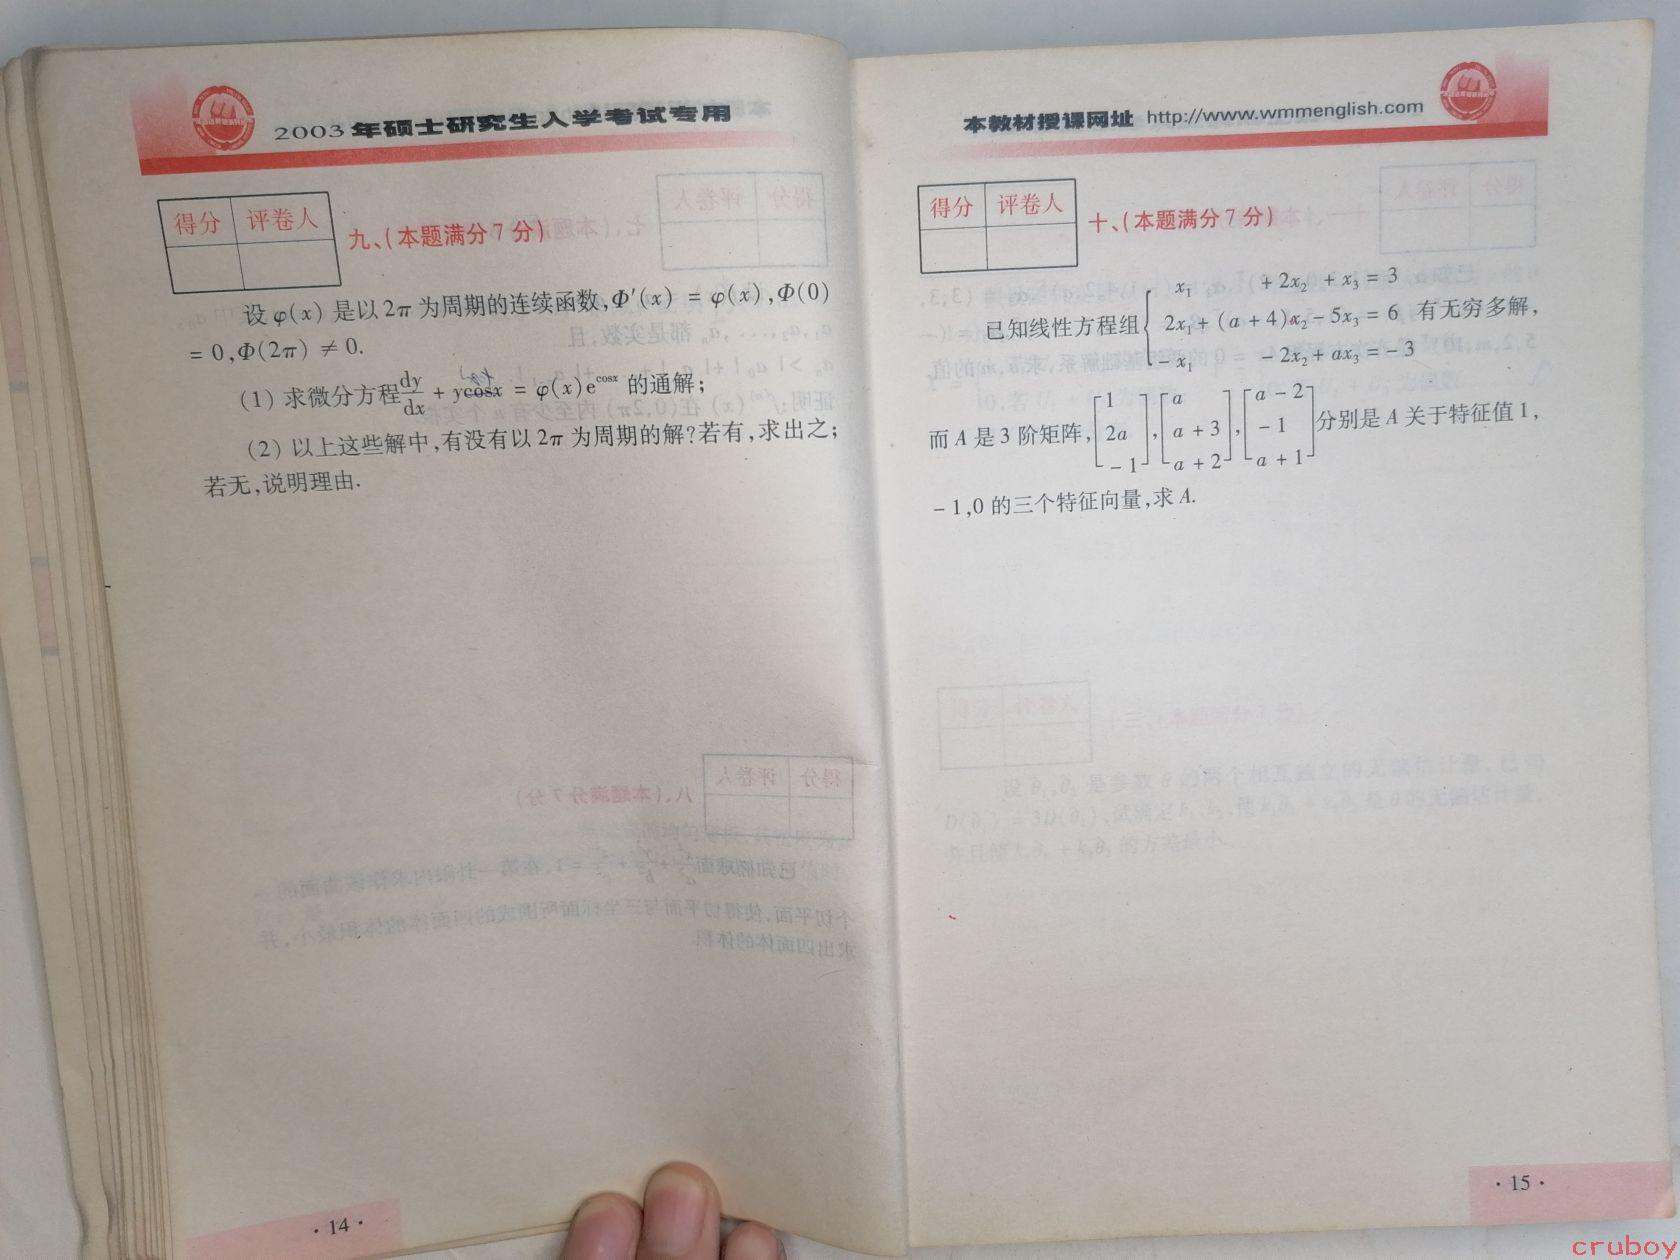 2003年硕士研究生入学考试专用
得分 评卷人
九、(本题满分7分)
设 φ(x) 是以 2π 为周期的连续函数,Φ′(x) = φ(x),Φ(0)
= 0,Φ(2π) ≠ 0.
(1) 求微分方程 dy/dx + ycosx = φ(x)e^cosx 的通解;
(2) 以上这些解中,有没有以 2π 为周期的解?若有,求出之;
若无,说明理由.
·14·
本教材授课网址 http://www.wmmenglish.com
得分 评卷人
十、(本题满分7分)
x₁ + 2x₂ + x₃ = 3
已知线性方程组 2x₁ + (a + 4)x₂ - 5x₃ = 6 有无穷多解,
- x₁ - 2x₂ + ax₃ = - 3
而 A 是 3 阶矩阵, [1 2a -1], [a a + 3 a + 2], [a - 2 -1 a + 1] 分别是 A 关于特征值 1,
- 1,0 的三个特征向量,求 A.
·15·
cruboy